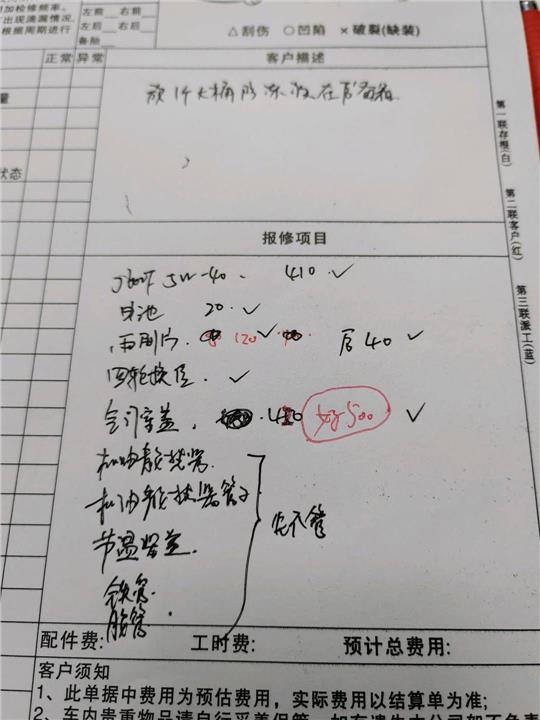 加检修频率。
出现滴漏情况,
根据周期进行
左前 右前
左后 右后
备胎
△刮伤 ○凹陷 ×破裂(缺装)
正常 异常
客户描述
放1个大桶防冻液在后备箱
量
状态
第一联存根(白)
第二联客户(红)
第三联派工(蓝)
报修项目
5W-40. 410 ✓
电池 20. ✓
雨刮片. 120 ✓ 后40 ✓
四轮换位. ✓
气门室盖. 好500 ✓
机油散热器.
机油散热器管子
节温器盖.
铁管
胶管.
先不管
配件费: 工时费: 预计总费用:
客户须知
1、此单据中费用为预估费用,实际费用以结算单为准;
2、车内贵重物品请自行妥善保管